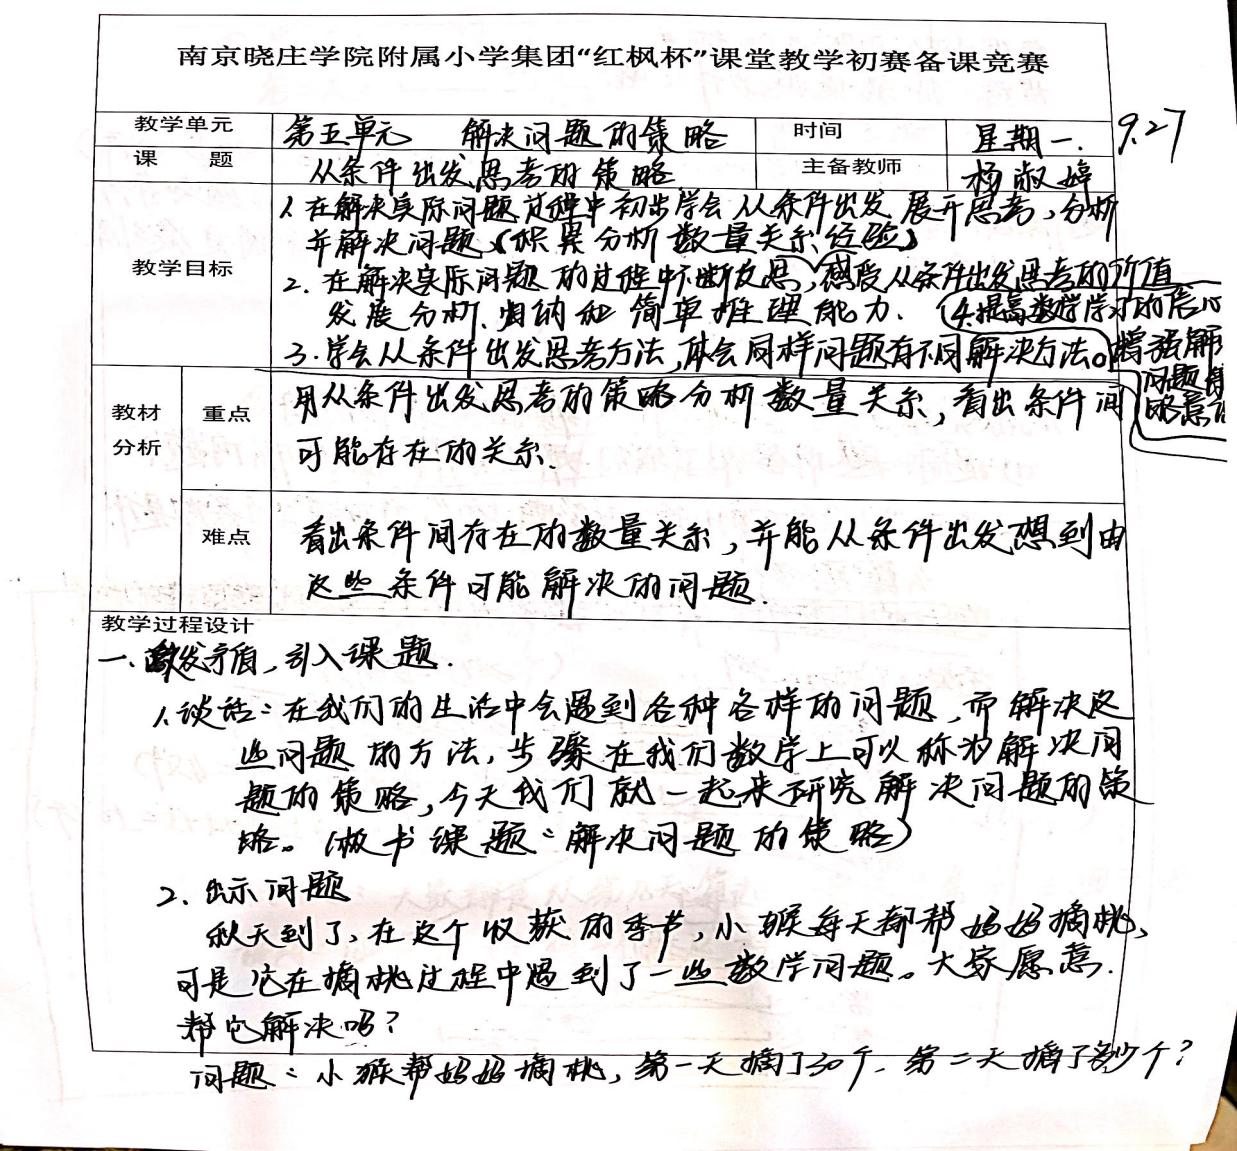 南京晓庄学院附属小学集团“红枫杯”课堂教学初赛备课竞赛
教学单元 第五单元 解决问题的策略 时间 星期一. 9.27
课 题 从条件出发思考的策略 主备教师 杨淑婷
教学目标
1. 在解决实际问题过程中初步学会从条件出发展开思考，分析
并解决问题，(积累分析数量关系经验)
2. 在解决实际问题的过程中不断反思，感受从条件出发思考的价值
发展分析、归纳和简单推理能力.
4.提高数学学习的信心
3.学会从条件出发思考方法，体会同样问题有不同解决方法。
增强解
问题策
略意识
教材分析 重点 用从条件出发思考的策略分析数量关系，看出条件间
可能存在的关系.
难点 看出条件间存在的数量关系，并能从条件出发想到由
这些条件可能解决的问题.
教学过程设计
一、激发矛盾，引入课题.
1.谈话：在我们的生活中会遇到各种各样的问题，而解决这
些问题的方法，步骤在我们数学上可以称为解决问
题的策略，今天我们就一起来研究解决问题的策
略。(板书课题：解决问题的策略)
2. 出示问题
秋天到了，在这个收获的季节，小猴每天都帮妈妈摘桃，
可是它在摘桃过程中遇到了一些数学问题。大家愿意.
帮它解决吗？
问题：小猴帮妈妈摘桃，第一天摘了30个，第二天摘了多少个？